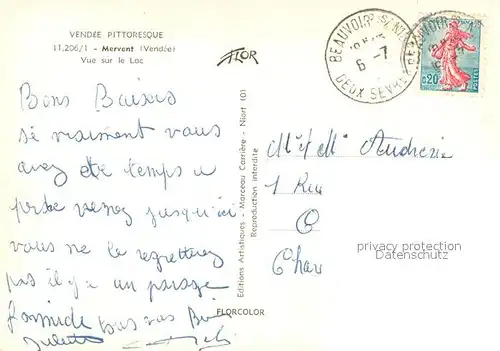 VENDÉE PITTORESQUE
11.206/1 - Mervent (Vendée)
Vue sur le Lac
FLOR
BEAUVOIR-S-NIORT
6-7
DEUX SEVRES
0,20
Bons Baisers
si vraiment vous
avez de temps a
perdre venez jusqu'ici
vous ne le regretterez
pas il y a un paysage
formidable
Editions Artistiques - Marceau Carrière - Niort 101
Reproduction interdite
FLORCOLOR
1 Rue
privacy protection
Datenschutz